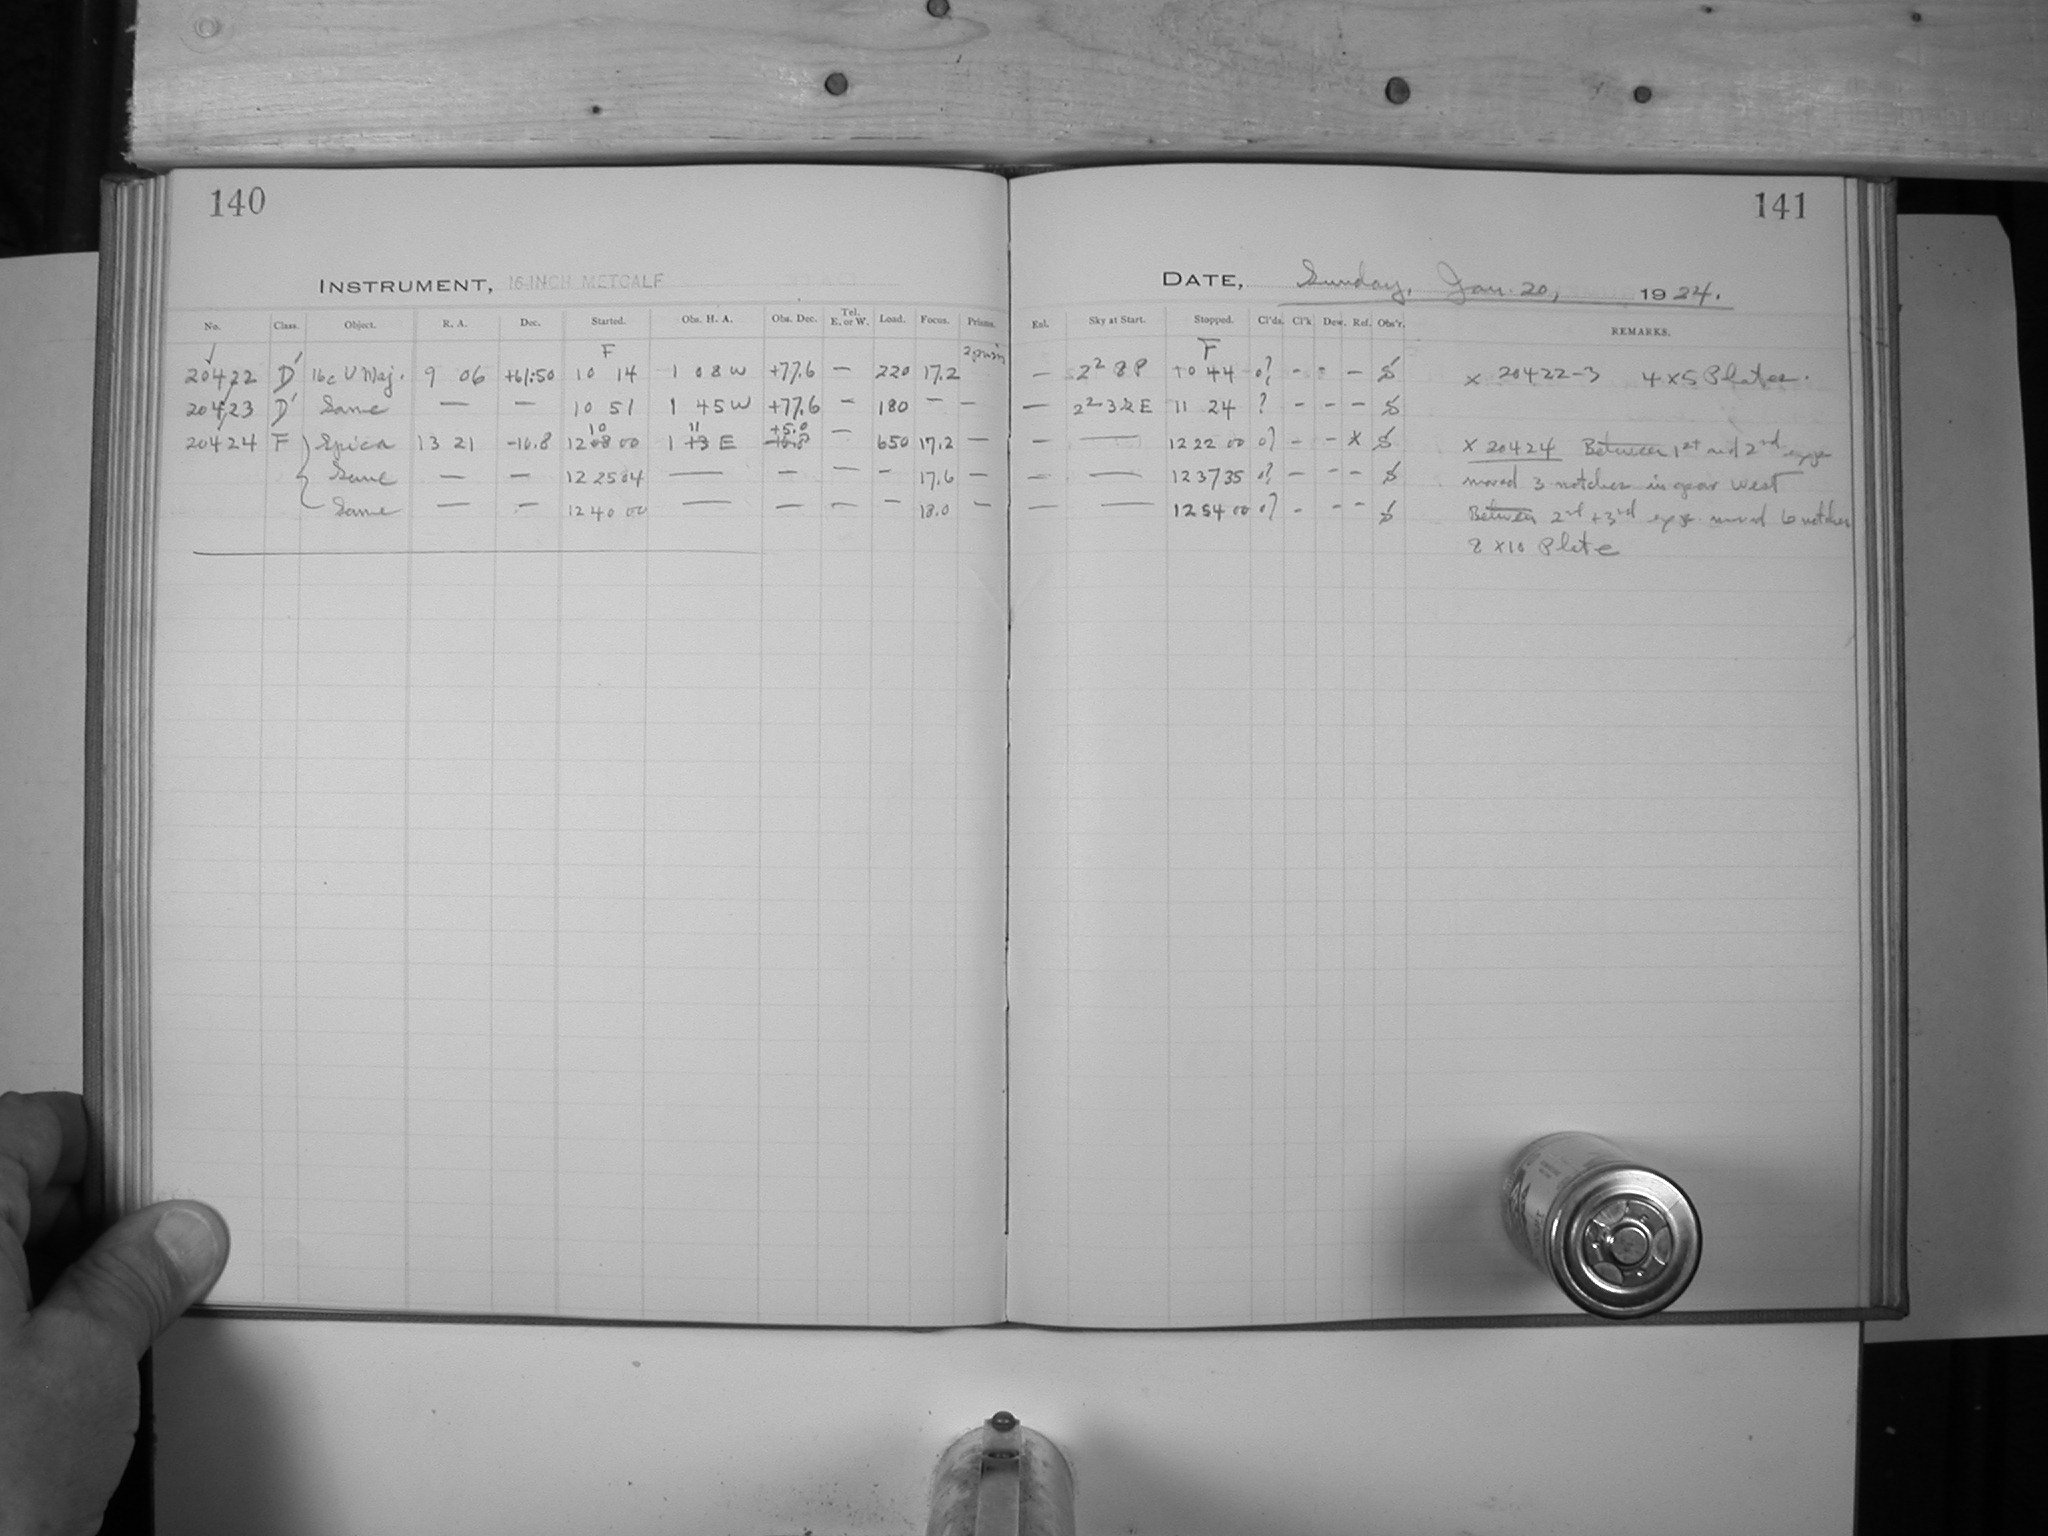 140
141
INSTRUMENT, 16-INCH METCALF
DATE, Sunday, Jan. 20, 1924.
No. Class. Object. R. A. Dec. Started. Obs. H. A. Obs. Dec. Tel. E. or W. Load. Focus. Prisms. Enl. Sky at Start. Stopped. Cl'ds. Cl'k Dew. Ref. Obs'r. REMARKS.
F F
20422 D' 16c U Maj. 9 06 +61:50 10 14 1 08 W +77.6 — 220 17.2 — 2² 8 P 10 44 0? - - - S × 20422-3 4 × 5 Plates.
20423 D' Same — — 10 51 1 45 W +77.6 — 180 — — — 11 24 ? - - - S
10 11 +5.0
20424 F Spica 13 21 -10.8 12 08 00 1 13 E -10.8 — 650 17.2 — — — 12 22 00 0? - - × S × 20424 Between 1st and 2nd
Same — — 12 25 04 — — — - 17.6 - - — 12 37 35 0? - - - S moved 3 notches in gear West
Same — — 12 40 00 — — — - 18.0 - — — 12 54 00 0? - - - S Between 2nd + 3rd moved 6 notches
8 × 10 Plate